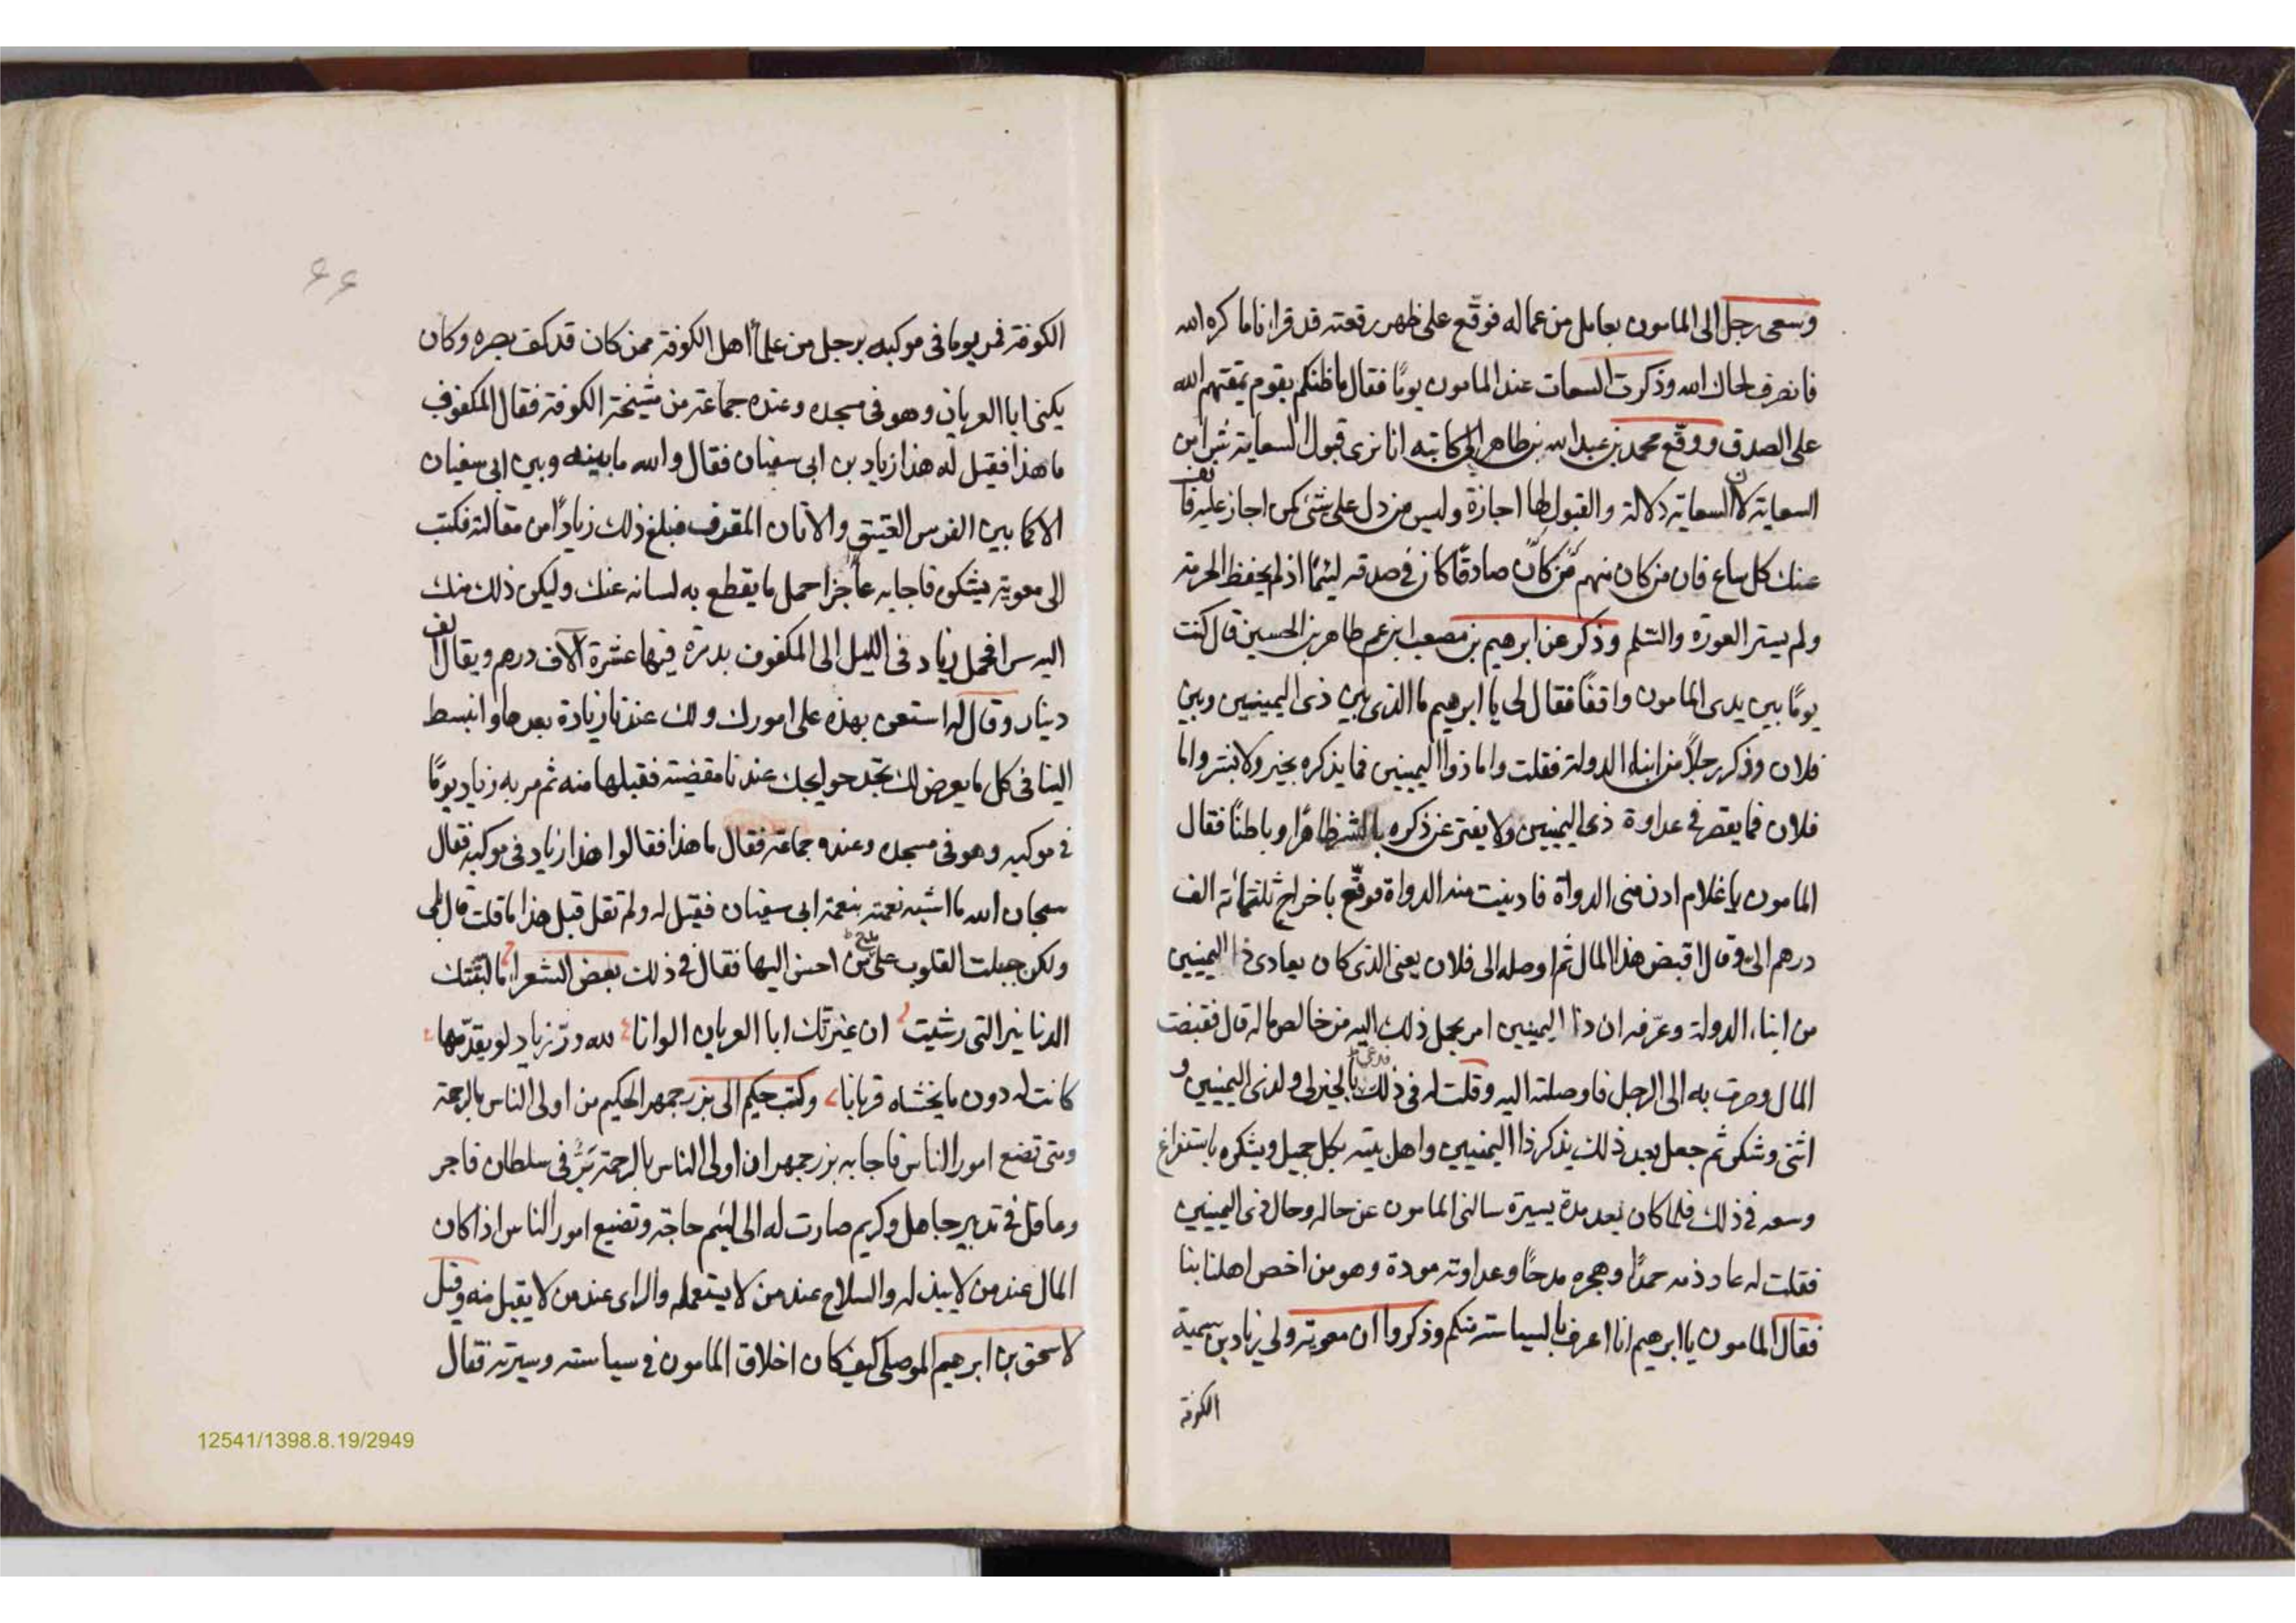 وسعى رجل الى المامون بعامل من عماله فوقّع على ظهر رقعته قد قرانا ما كره الله
فانصرف لحاك الله وذكرت السعات عند المامون يومًا فقال ما ظنكم بقوم يمقتهم الله
على الصدق ووقّع محمد بن عبدالله بن طاهر الى كاتبه انا نرى قبول السعاية شرا من
السعاية لان السعاية دلالة والقبول لها اجازة وليس من دل على شئ كمن اجاز عليه فانف
عنك كل ساع فان من كان منهم صادقًا كان فى صدقه ليئمًا اذ لم يحفظ الحرمة
ولم يستر العورة والسّلم وذكر عن ابرهيم بن مصعب ابن عم طاهر بن الحسين قال كنت
يومًا بين يدى المامون واقفًا فقال لى يا ابرهيم ما الذى بين ذى اليمينين وبين
فلان وذكر رجلاً من ابناء الدولة فقلت واما ذوا اليمينين فما يذكره بخير ولا بشر واما
فلان فما يقصر فى عداوة ذى اليمينين ولا يفتر عن ذكره بالشر ظاهرًا وباطنًا فقال
المامون يا غلام ادن منى الدواة فادنيت منه الدواة فوقّع باخراج ثلثمائة الف
درهم الى وقال اقبض هذا المال ثم اوصله الى فلان يعنى الذى كان يعادى ذا اليمينين
من ابناء الدولة وعرّفه ان ذا اليمينين امر بحمل ذلك اليه من خالص ماله قال فقبضت
المال وصرت به الى الرجل فاوصلته اليه وقلت له فى ذلك فدعى بالخير لى ولذى اليمينين و
اثنى وشكر ثم جعل بعد ذلك يذكر ذا اليمينين واهل بيته بكل جميل ويشكره باستفراغ
وسعه فى ذلك فلما كان بعد مدة يسيرة سالنى المامون عن حاله وحال ذى اليمينين
فقلت له عاد ذمه حمدًا وهجره مدحًا وعداوته مودة وهو من اخص اهلنا بنا
فقال المامون يا ابرهيم انا اعرف بالسياسة منكم وذكروا ان معوية ولى زياد بن سمية
الكوفة
۶۶
الكوفة فمر يوما فى موكبه برجل من علمأ اهل الكوفة ممن كان قد كف بصره وكان
يكنى ابا العريان وهو فى مسجده وعنده جماعة من مشيخة الكوفة فقال المكفوف
ما هذا فقيل له هذا زياد بن ابى سفيان فقال والله ما بينه وبين ابى سفيان
الا كما بين الفرس العتيق والاتان المقرف فبلغ ذلك زيادًا من مقالته فكتب
الى معوية يشكوه فاجابه عاجزا احمل ما يقطع به لسانه عنك وليكن ذلك منك
اليه سرا فحمل زياد فى الليل الى المكفوف بدرة فيها عشرة الاف درهم ويقال الف
دينار وقال له استعن بهذه على امورك ولك عندنا زيادة بعدها وانبسط
الينا فى كل ما يعرض لك تجد حوايجك عندنا مقضية فقبلها منه ثم مر به زياد يومًا
فى موكبه وهو فى مسجده وعنده جماعة فقال ما هذا فقالوا هذا زياد فى موكبه فقال
سبحان الله ما اشبه نعمته بنعمة ابى سفيان فقيل له ولم تقل قبل هذا ما قلت قال بلى
ولكن جبلت القلوب على حب من احسن اليها فقال فى ذلك بعض الشعرا ما البثتك
الدنانير التى رشيت ان غيرتك ابا العريان الوانا لله درّ زياد لو يقدّمها
كانت له دون ما يخشاه قربانا وكتب حكيم الى بزرجمهر الحكيم من اولى الناس بالرحمة
ومتى تضع امور الناس فاجابه بزرجمهر ان اولى الناس بالرحمة برّ فى سلطان فاجر
وعاقل فى تدبير جاهل وكريم صارت له الى ليئم حاجة وتضيع امور الناس اذا كان
المال عند من لا يبذله والسلاح عند من لا يستعمله والراى عند من لا يقبل منه وقيل
لاسحق بن ابرهيم الموصلى كيف كان اخلاق المامون فى سياسته وسيرته فقال
12541/1398.8.19/2949